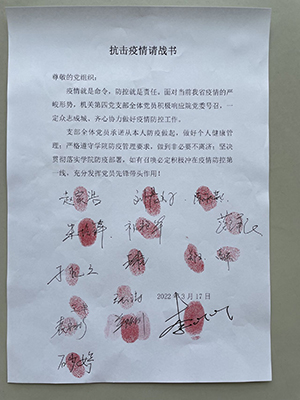 抗击疫情请战书
尊敬的党组织：
疫情就是命令，防控就是责任，面对当前我省疫情的严
峻形势，机关第四党支部全体党员积极响应院党委号召，一
定众志成城、齐心协力做好疫情防控工作。
支部全体党员承诺从本人防疫做起，做好个人健康管
理；严格遵守学院防疫管理要求，做到非必要不离济；坚决
贯彻落实学院防疫部署，如有召唤必定积极冲在疫情防控第
一线，充分发挥党员先锋带头作用！
2022年3月17日